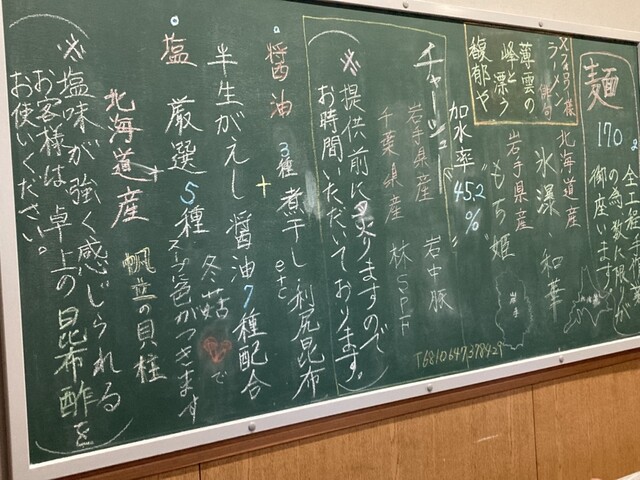 麺
170
の為、数に限りが
御座います
北海道産
氷瀑、和華
岩手県産
"もち姫"
岩手
加水率
45.2
%
ラーメン俳句
薄雲の
峰と漂う
馥郁や
チャーシュー
岩手県産 岩中豚
千葉県産 林SPF
T6810647378429
(※提供前に炙りますので
お時間いただいております。)
醤油 3種煮干し、利尻昆布
etc
+
半生がえし 醤油7種配合
塩 厳選5種 冬菇で
スープに色がつきます
+
北海道産 帆立の貝柱
(※塩味が強く感じられる
お客様は卓上の昆布酢を
お使いください。)